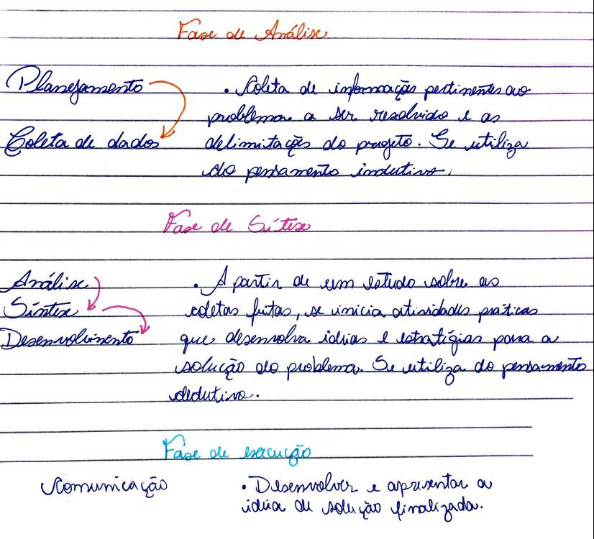 Fase de Análise
Planejamento
Coleta de dados
• Coleta de informação pertinentes ao
problema a ser resolvido e as
delimitações do projeto. Se utiliza
do pensamento indutivo.
Fase de Sítese
Análise
Síntese
Desenvolvimento
• A partir de um estudo sobre as
coletas feitas, se inicia atividades práticas
que desenvolva idéias e estratégias para a
solução do problema. Se utiliza do pensamento
dedutivo.
Fase de execução
Comunicação
• Desenvolver e apresentar a
idéia de solução finalizada.